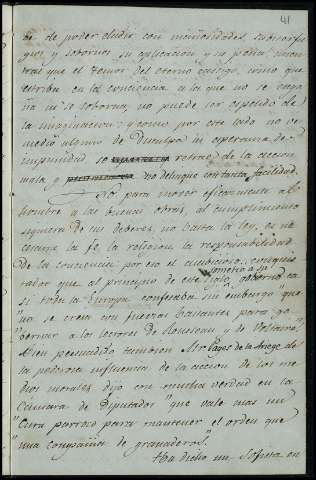 41
de poder eludir con mañosidades, subterfu-
gios y sobornos su aplicacion y su pena; mien-
tras que el temor del eterno castigo, como que
estriba en la conciencia a la que no se enga-
ña ni se soborna, no puede ser espelido de
la imaginacion; y como por este lado no ve
medio alguno de disculpa ni esperanza de
impunidad se retrae de la accion
mala y no delinque con tanta facilidad.
Para mover eficazmente al
hombre a las buenas obras, al cumplimiento
siquiera de sus deberes, no basta la ley, es ne-
cesaria la fe, la religion, la responsabilidad
de la conciencia: por eso el ambicioso conquis-
tador que al principio de este siglo sometió a su gobierno ca-
si toda la Europa confesaba sin embargo "que
"no se creia con fuerzas bastantes para go-
"bernar a los lectores de Rousseau y de Voltaire".
Bien persuadido tambien Mr Pages de la Ariege de
la poderosa influencia de la accion de los me-
dios morales, dijo con mucha verdad en la
Cámara de Diputados "que vale mas un
"Cura parroco para mantener el orden que
"una compañia de granaderos".
Ha dicho un sofista en